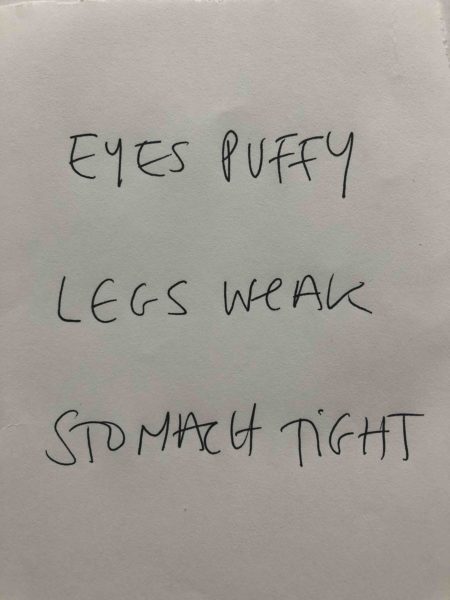 EYES PUFFY
LEGS WEAK
STOMACH TIGHT